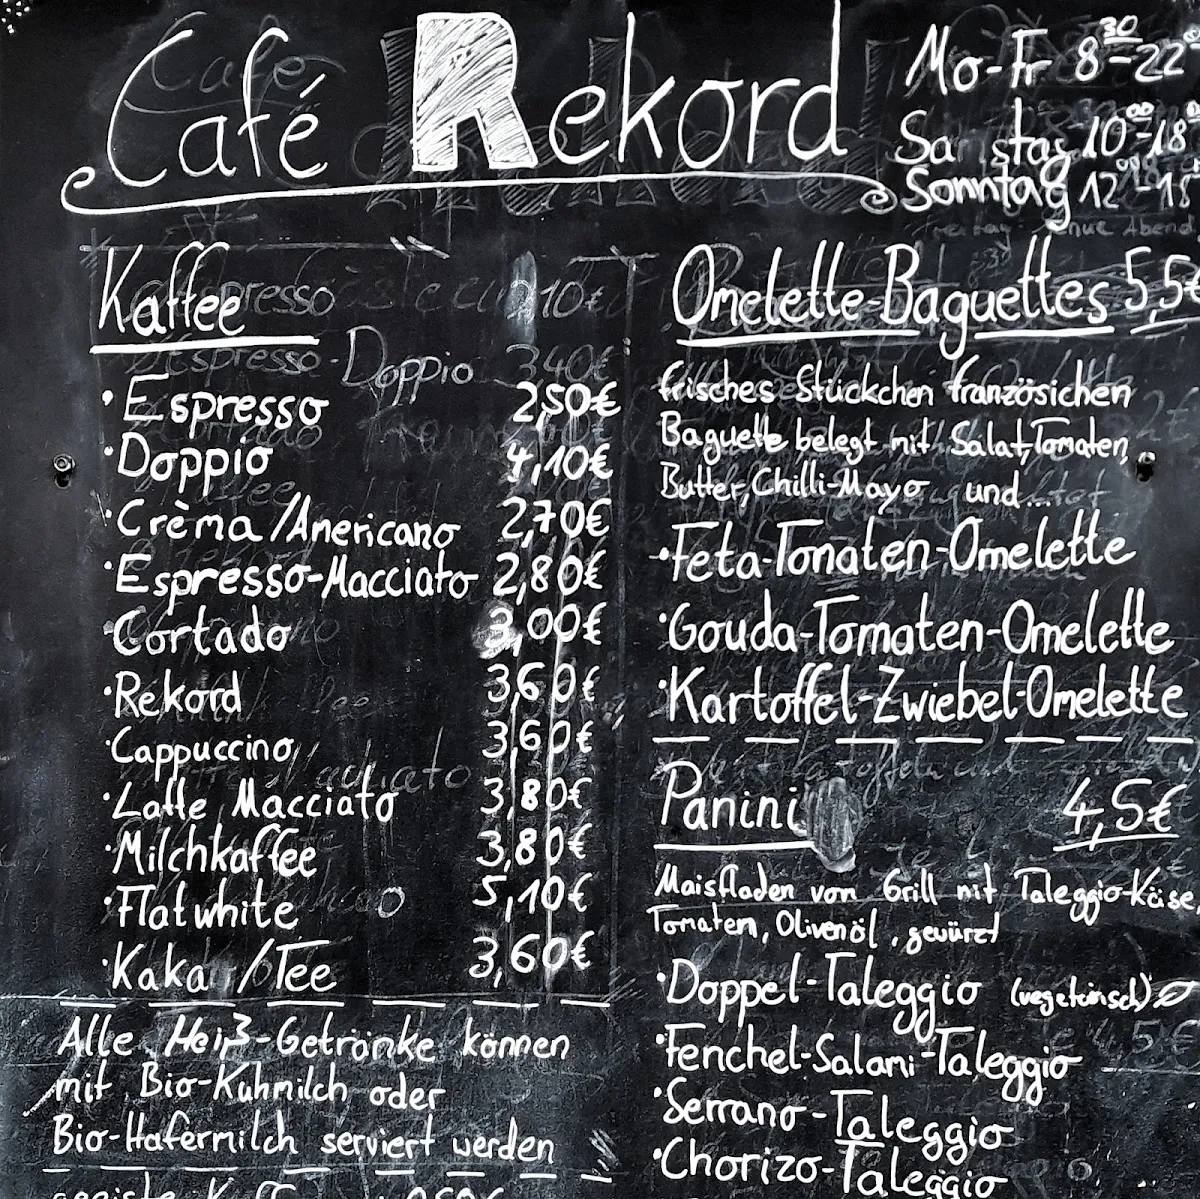 Café Rekord
Mo-Fr 8³⁰-22⁰⁰
Sa stag 10⁰⁰-18
Sonntag 12⁰⁰-18
Kaffee
·Espresso 2,50€
·Doppio 4,10€
·Crèma/Anericano 2,70€
·Espresso-Macciato 2,80€
·Cortado 3,00€
·Rekord 3,60€
·Cappuccino 3,60€
·Latte Macciato 3,80€
·Milchkaffee 3,80€
·Flatwhite 5,10€
·Kaka /Tee 3,60€
Alle Heiß-Getränke können
mit Bio-Kuhmilch oder
Bio-Hafermilch serviert werden
Omelette-Baguettes 5,5€
frisches Stückchen französichen
Baguette belegt mit Salat,Tomaten,
Butter,Chilli-Mayo und...
·Feta-Tomaten-Omelette
·Gouda-Tomaten-Omelette
·Kartoffel-Zwiebel-Omelette
Panini 4,5€
Maisfladen vom Grill mit Taleggio-Käse
Tomaten, Olivenöl, gewürzt
·Doppel-Taleggio (vegetarisch)
·Fenchel-Salami-Taleggio
·Serrano-Taleggio
·Chorizo-Taleggio